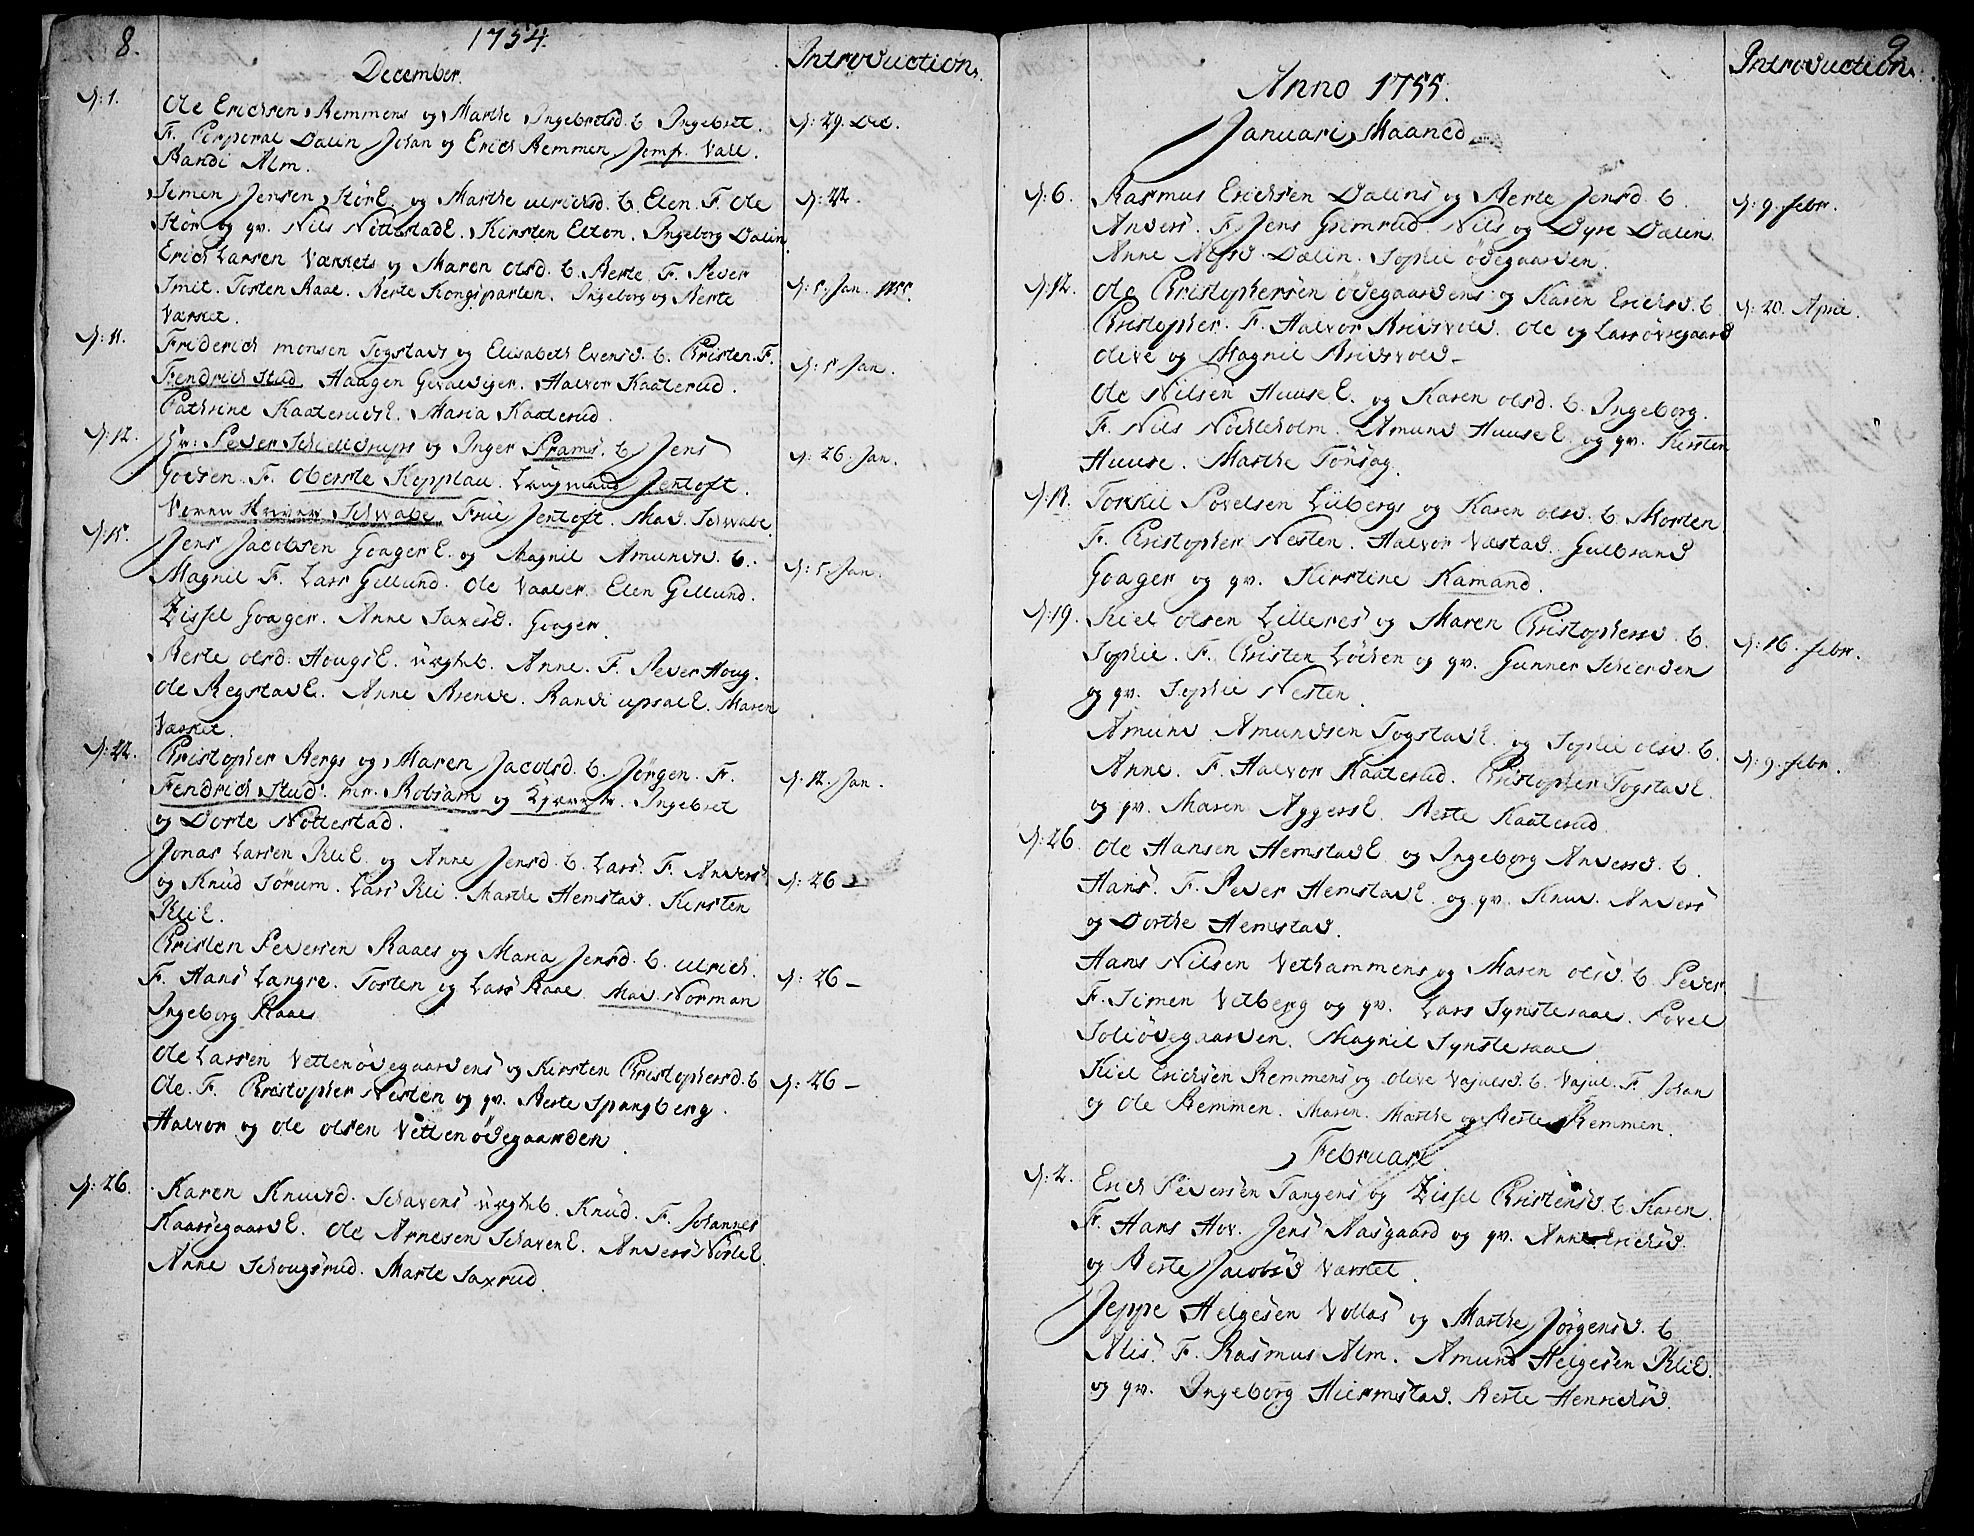 8.
1754.
December.
Introduction.
d: 1.
Ole Erichsen Remmens og Marthe Ingebretsd. b. Ingebret.
d: 29. Dec.
F. Corporal Dælin Johan og Erich Remmen, Jomfr. Vall.
Randi Alm.
Simen Jensen StørE. og Marthe Ulrichsd. b. Elen. F. Ole
d: 22.
Stør og qv. Nils NøttestadE. Kirsten Elton. Ingeborg Dælin
Erich Larsen Værkets og Maren Olsd. b. Berte. F. Peder
d: 5. Jan. 1755.
Smit. Torsten Raae. Berte Kongsparten. Ingeborg og Berte
Værket.
d: 11.
Friderich Monsen Togstads og Elisabeth Evensd. b. Christen. F.
d: 5 Jan.
Fendrich Stud. Haagen Gevaldiger. Halvor Kaaterud.
Cathrine KaaterudsE. Maria Kaaterud.
d: 12.
Hr: Peder Schieldrups og Inger Prams. b. Jens
d: 26. Jan.
Goesen. F. Oberste Kopplau. Laugmand Jentoft.
Schwabe. Frue Jentoft. Mad. Schwabe
d: 15.
Jens Jacobsen GaagerE. og Magnil Amundsd. b.
d: 5. Jan.
Magnil F. Lars Gillund. Ole Vaaler. Elen Gillund.
Zissel Gaager. Anne Saxesd. Gaager.
Berte Olsd. HougsE. uægteb. Anne. F. Peder Houg.
Ole RegstadE. Anne Brende. Randi UpsalE. Maren
Værket.
d: 22.
Christopher Bergs og Maren Jacobsd. b. Jørgen. F.
d: 12. Jan.
Fendrich Stud. mr. Robsam og . Ingebret
og Dorte Nøttestad.
Jonas Larsen KliE. og Anne Jensd. b. Lars. F. Anders
d: 26 –
og Knud Sørum. Lars Kli. Marthe Hemstad. Kirsten
KliE.
Christen Pedersen Raaes og Maria Jensd. b. Ulrich.
d: 26 –
F. Hans Langre. Torsten og Lars Raae. Mad. Norman
Ingeborg Raaes
Ole Larsen Vettenødegaardens og Kirsten Christophersd. b
d: 26 –
Ole. F. Christopher Nesten og qv. Berte Spangberg.
Halvor og Ole Olsen Vettenødegaarden.
d: 26.
Karen Knudsd. Schavens uægteb. Knud. F. Johannes
KaassegaardE. Ole Arnesen SchavenE. Anders NørliE.
Anne Schougsrud. Marte Saxrud.
9.
Introduction.
Anno 1755.
Januari Maaned
d: 6.
Rasmus Erichsen Dælins og Berte Jensd. b.
d: 9. febr.
Anders. F. Jens Grimsrud. Nils og Dyre Dælin.
Anne Nilsd. Dælin. Sophie Ødegaarden.
d: 12.
Ole Christophersen Ødegaardens og Karen Erichsd. b.
d: 20. April.
Christopher. F. Halvor Arisvold. Ole og Lars Øvregaard
Olive og Magnil Arisvold –
Ole Nilsen HuuseE. og Karen Olsd. b. Ingeborg.
F. Nils Nøcleholm. Amund HuuseE. og qv. Kirsten
Huuse. Marthe Tønsag.
d: 13.
Torkil Povelsen Liibergs og Karen Olsd. b. Morten
F. Christopher Nesten. Halvor Væstad. Gulbrand
Gaager og qv. Kirstine Kamand.
d: 19.
Kiel Olsen Lilleres og Maren Christophersd. b.
d: 16. febr.
Sophie. F. Christen Løchen og qv. Gunner Schierden
og qv. Sophie Nesten.
Amund Amundsen TogstadE. og Sophie Olsd. b.
d: 9. febr.
Anne. F. Halvor Kaaterud. Christopher TogstadE.
og qv. Maren AggersE. Berte Kaaterud.
d: 26.
Ole Hansen HemstadE. og Ingeborg Andersd. b.
Hans. F. Peder HemstadE. og qv. Knud. Anders
og Dorthe Hemstad.
Hans Nilsen Vethammens og Maren Olsd. b. Peder
+
F. Simen Vetberg og qv. Lars Synsteraae. Povel
Soliødegaarden. Magnil Synsteraae
Kiel Erichsen Remmens og Olive Vajulsd. b. Vajul. F. Johan
og Ole Remmen. Maren. Marthe og Berte Remmen.
Februari
d: 2.
Erich Pedersen Tangens og Zissel Christensd. b. Karen.
F. Hans Hov. Jens Aasgaard og qv. Anne Erichsd.
og Berte Jacobsd Værket.
Jeppe Helgesen Vollas og Marthe Jørgensd. b.
Alis. F. Rasmus Alm. Amund Helgesen KliE.
og qv. Ingeborg Hiermstad. Berte Henrichsd.